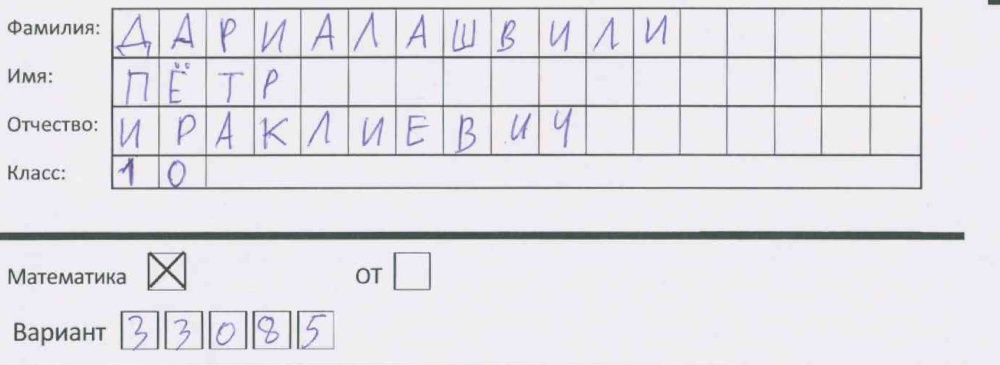 Фамилия: ДАРИАЛАШВИЛИ
Имя: ПЁТР
Отчество: ИРАКЛИЕВИЧ
Класс: 10
Математика ОТ
Вариант 33085